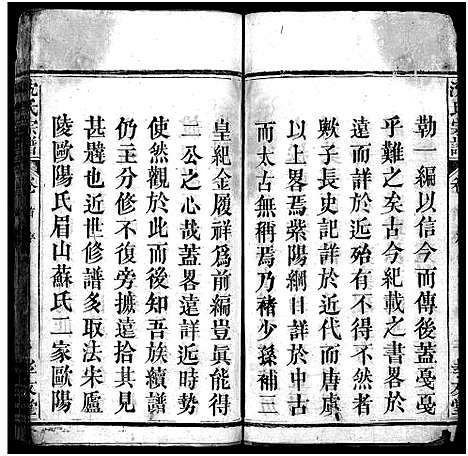 勒一編以信今而傳後蓋戞戞
乎難之矣古今紀載之書畧於
遠而詳於近殆有不得不然者
歟子長史記詳於近代而唐虞
以上畧焉紫陽綱目詳於中古
而太古無稱焉乃褚少孫補三
皇紀金履祥爲前編豈眞能得
二公之心哉蓋畧遠詳近時勢
使然觀於此而後知吾族續譜
仍止修本支不復旁摭遠拾良
甚韙也近世修譜多取法朱廬
陵歐陽氏眉山蘇氏二家歐陽
沈氏宗譜
卷首
孝友堂